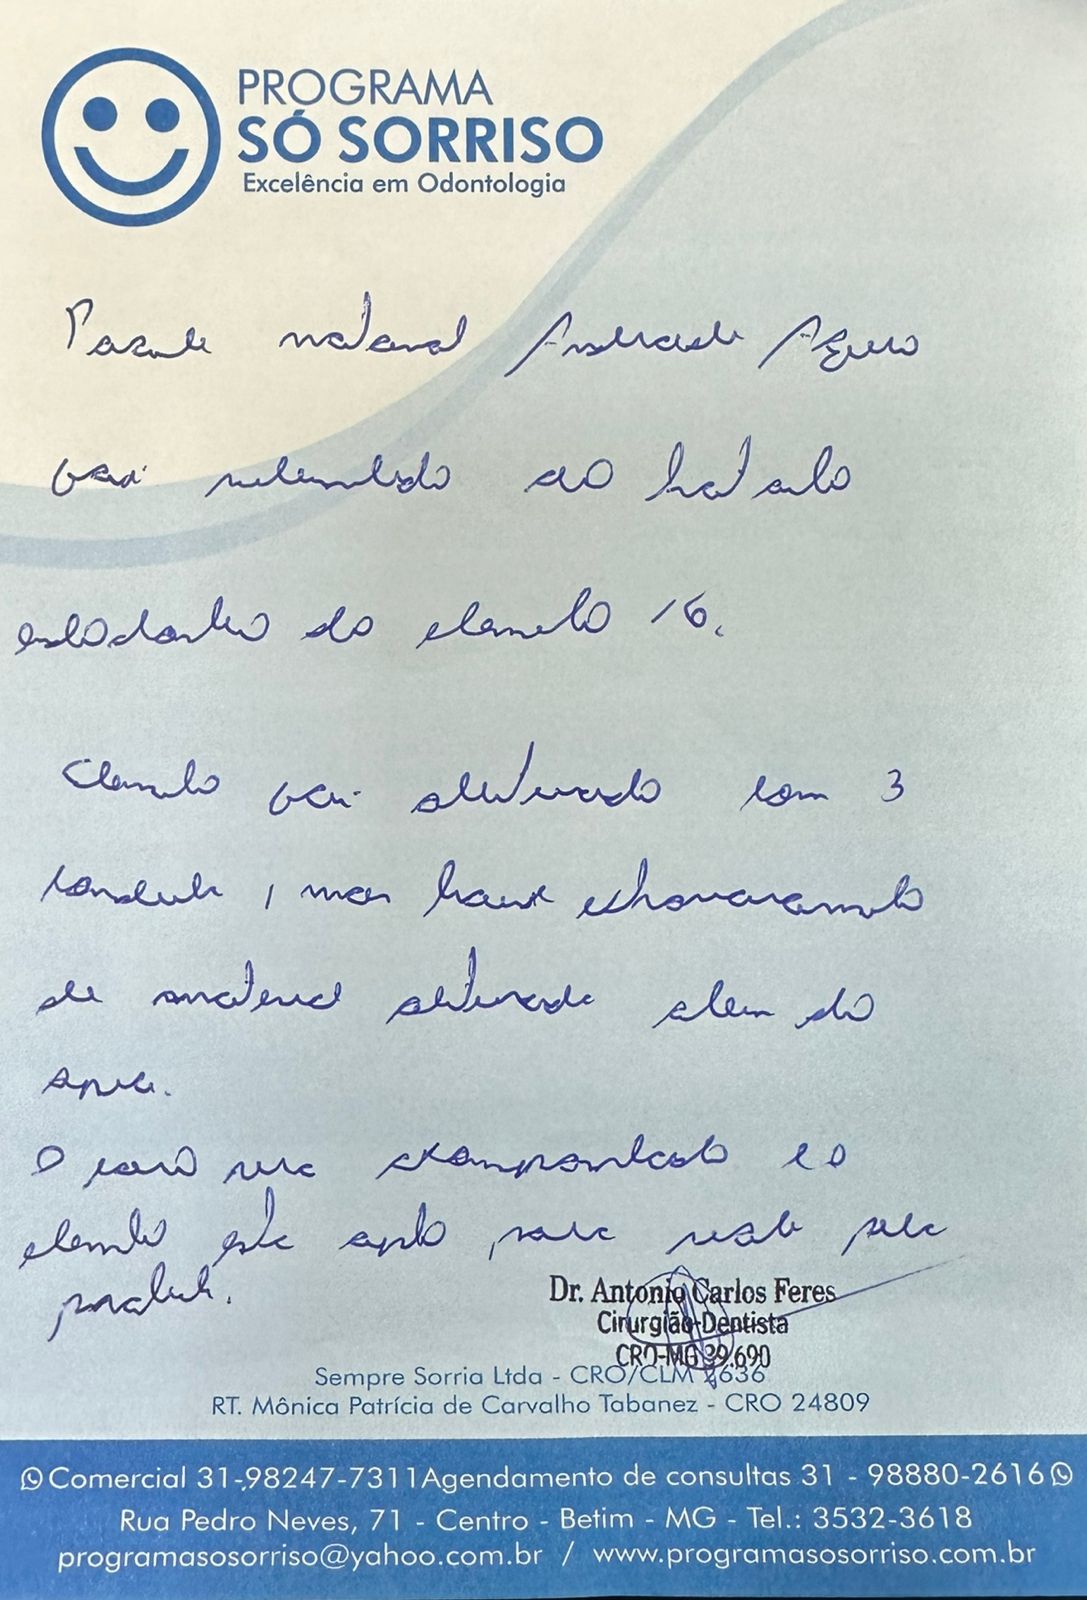 PROGRAMA
SÓ SORRISO
Excelência em Odontologia
Paciente Andrade
foi submetido ao tratamento
endodontico do elemento 16.
Elemento foi obturado com 3
condutos, mas houve extravasamento
de material obturador alem do
apice.
O caso foi acompanhado e o
elemento está apto para receber
Dr. Antonio Carlos Feres
Cirurgião-Dentista
CRO-MG 39.690
Sempre Sorria Ltda - CRO/CLM 2636
RT. Mônica Patrícia de Carvalho Tabanez - CRO 24809
Comercial 31-98247-7311 Agendamento de consultas 31 - 98880-2616
Rua Pedro Neves, 71 - Centro - Betim - MG - Tel.: 3532-3618
programasosorriso@yahoo.com.br / www.programasosorriso.com.br